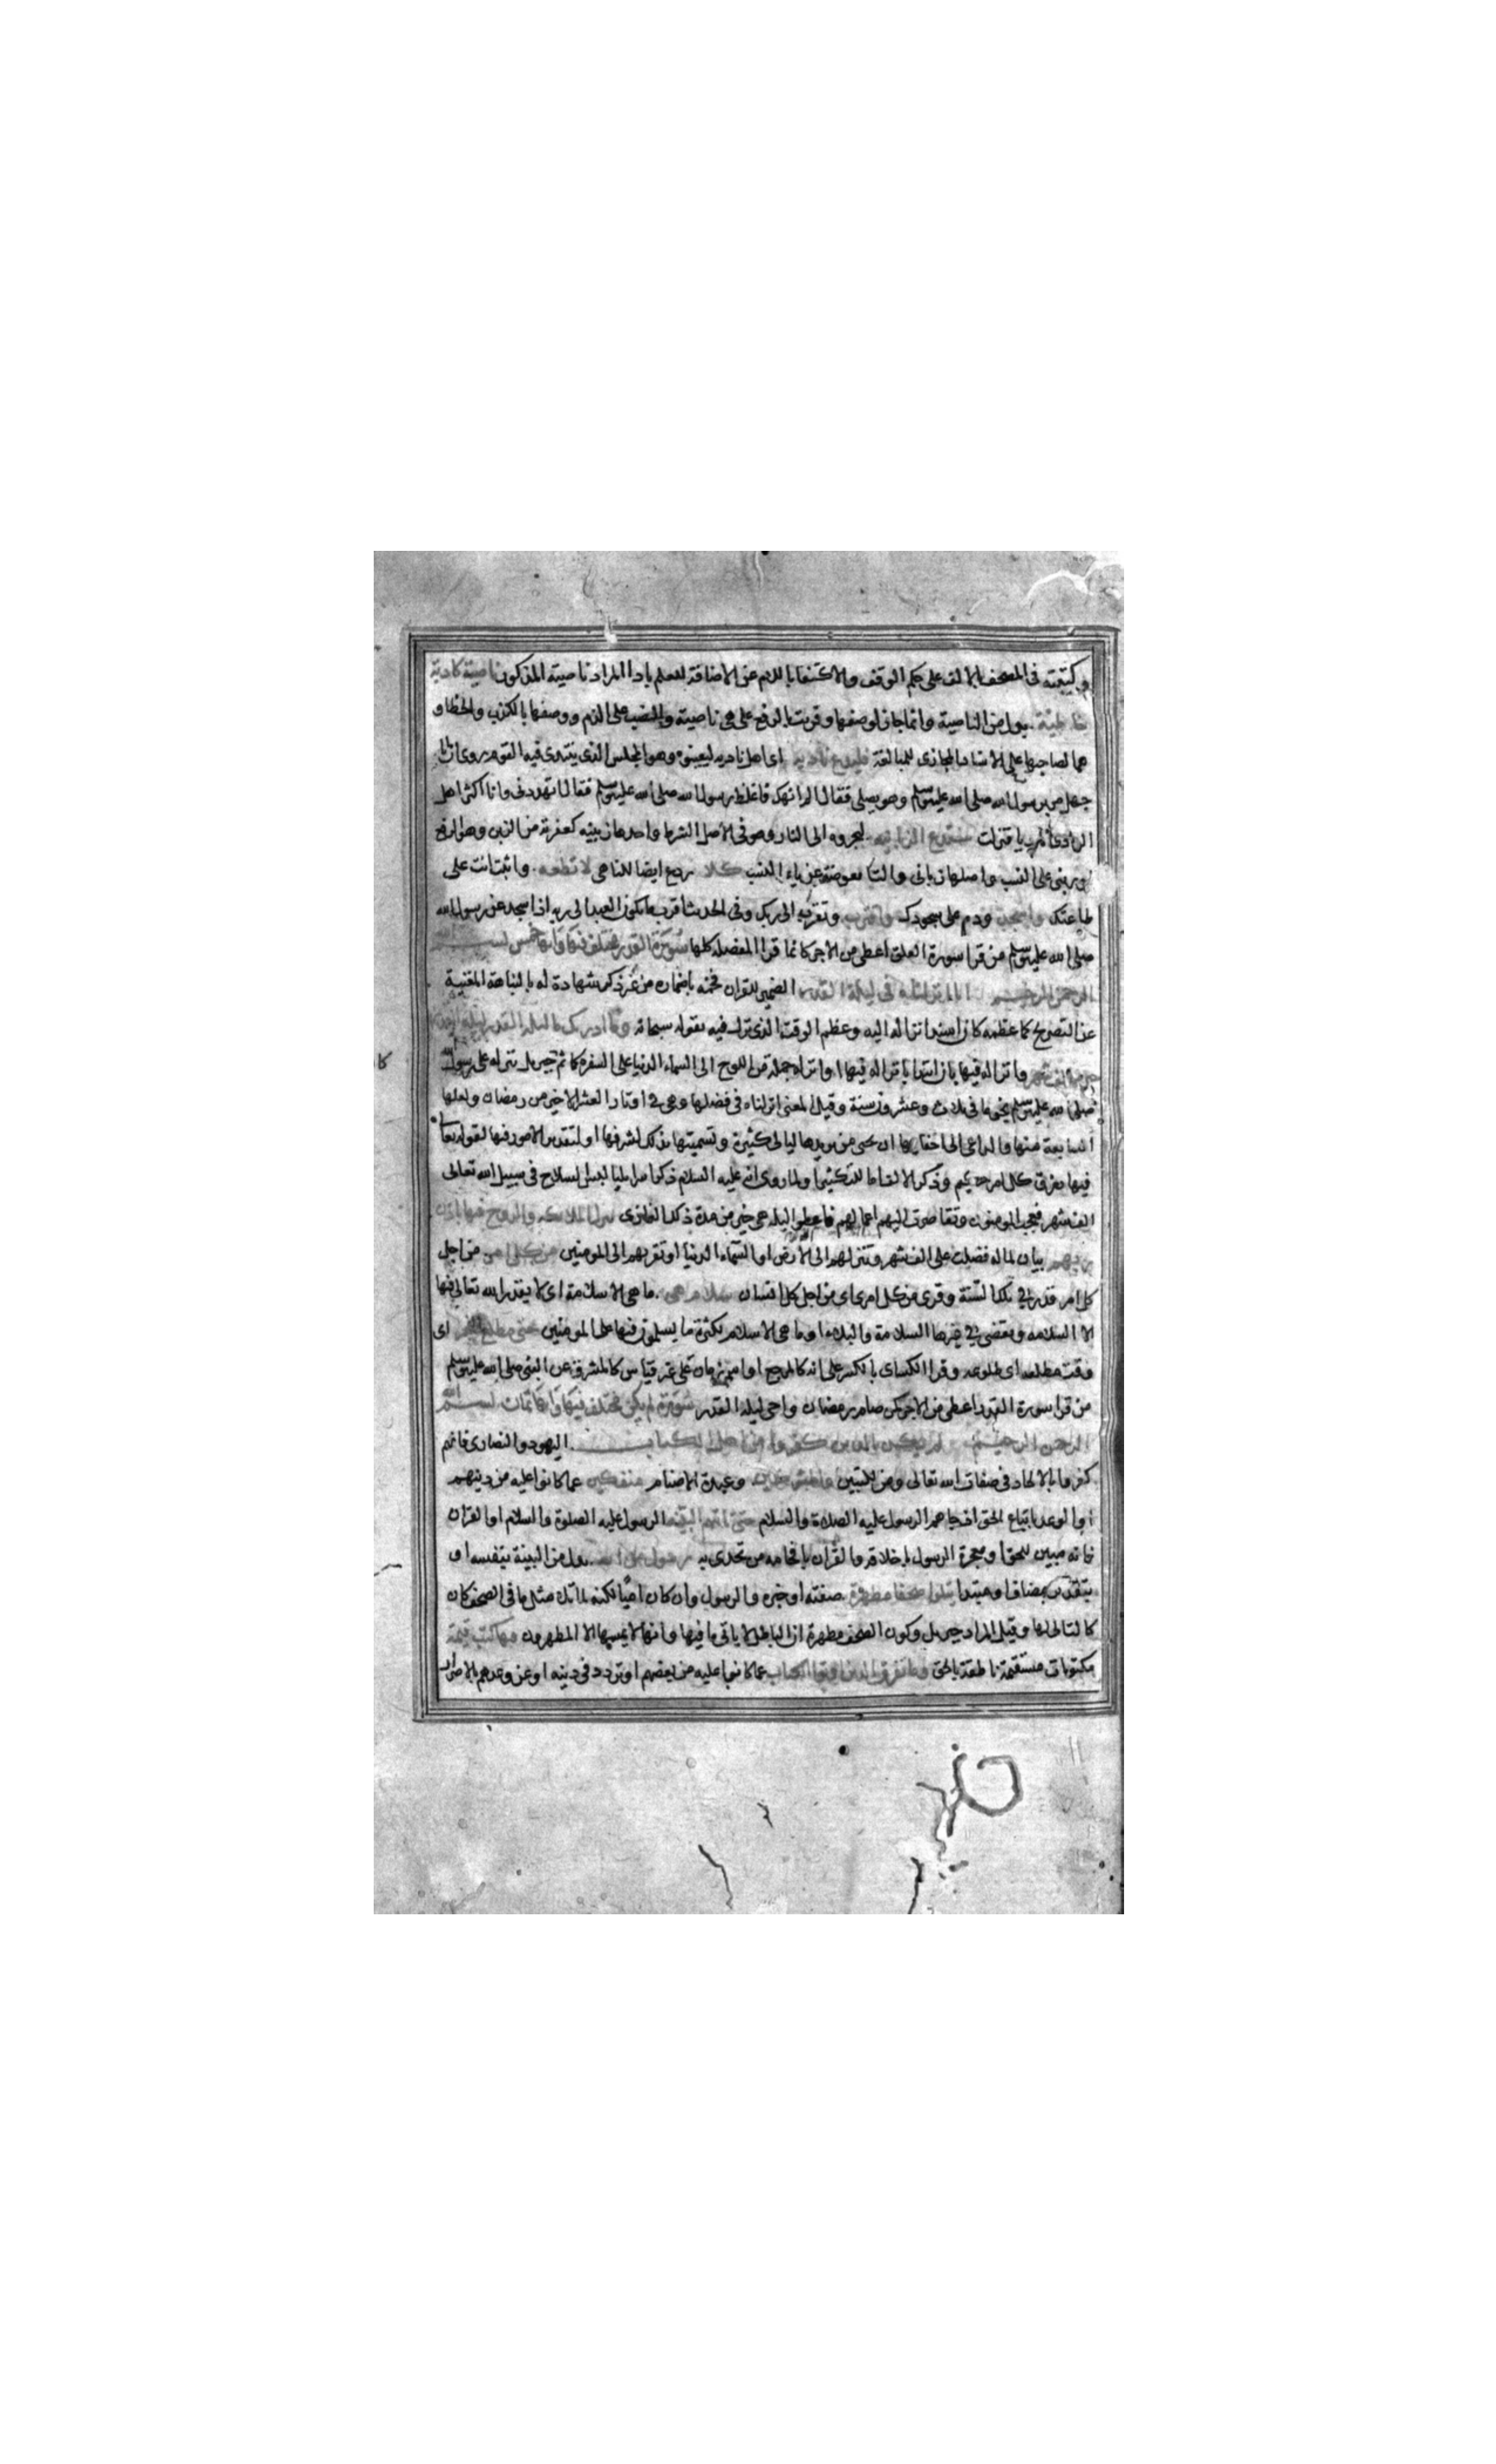 وكتبته في المصحف بالالف على حكم الوقف والاكتفا باللام عن الاضافة للعلم بان المراد ناصيته المذكور ناصية كاذبة
خاطئة بدل من الناصية وانما جاز لوصفها وقريت بالرفع على هي ناصية والنصب على الذم ووصفها بالكذب والخطا و
هما لصاحبها على الاسناد المجازي للمبالغة فليدع ناديه اي اهل ناديه ليعينوه وهو المجلس الذي ينتدي فيه القوم روي ان ابا
جهل مر برسول الله صلى الله عليه وسلم وهو يصلي فقال الم انهك فاغلظ رسول الله صلى الله عليه وسلم فقال اتهددني وانا اكثر اهل
الوادي ناديا فنزلت سندع الزبانية ليجروه الى النار وهو في الاصل الشرط واحدها زبنية كعفرية من الزبن وهو الدفع
او زبني على النسب واصلها زباني والتا معوضة عن ياء النسب كلا ردع ايضا للناهي لا تطعه واثبت انت على
طاعتك واسجد ودم على سجودك واقترب وتقرب الى ربك وفي الحديث اقرب ما يكون العبد الى ربه اذا سجد عن رسول الله
صلى الله عليه وسلم من قرا سورة العلق اعطي من الاجر كانما قرا المفصل كلها سورة القدر مختلف فيها وايها خمس بسم الله
الرحمن الرحيم انا انزلناه في ليلة القدر الضمير للقران فخمه باضماره من غير ذكر شهادة له بالنباهة المغنية
عن التصريح كما عظمه كان اسند انزاله اليه وعظم الوقت الذي نزل فيه بقوله سبحانه وما ادريك ما ليلة القدر ليلة القدر
خير من الف شهر وانزاله فيها بان ابتدا بانزاله فيها او انزله جملة من اللوح الى السماء الدنيا على السفرة كا ثم جبريل ينزله على رسول الله
صلى الله عليه وسلم نجوما في ثلاث وعشرون سنة وقيل المعنى انزلناه في فضلها وهي في اوتار العشر الاخير من رمضان ولعلها
السابعة منها والداعي الى اخفايها ان يحيي من يريدها ليالي كثيرة وتسميتها بذلك لشرفها او لتقدير الامور فيها لقوله تعالى
فيها يفرق كل امر حكيم وذكر الالف اما للتكثير او لما روي انه عليه السلام ذكر اسرايليا لبس السلاح في سبيل الله تعالى
الف شهر فعجب المومنون وتقاصرت اليهم اعمالهم فاعطوا ليله هي خير من مدة ذلك الغازي تنزل الملائكة والروح فيها باذن
ربهم بيان لما له فضلت على الف شهر وتنزلهم الى الارض او السماء الدنيا او تقربهم الى المومنين من كل امر من اجل
كل امر قدر في تلك السنة وقري من كل امرى اي من اجل كل انسان سلام هي ما هي الا سلامة اي لا يقدر الله تعالى فيها
الا السلامه ويقضي في غيرها السلامة والبلاء او ما هي الا سلام لكثرة ما يسلمون فيها على المومنين حتى مطلع الفجر اي
وقت مطلعه اي طلوعه وقرا الكساي بالكسر على انه كالمرجع او اسم زمان على غير قياس كالمشرق عن النبي صلى الله عليه وسلم
من قرا سورة القدر اعطي من الاجر كمن صام رمضان واحي ليلة القدر سورة لم يكن مختلف فيها وايها ثمان بسم الله
الرحمن الرحيم لم يكن الذين كفروا من اهل الكتاب اليهود والنصارى فانهم
كفروا بالالحاد في صفات الله تعالى ومن للتبيين والمشركين وعبدة الاصنام منفكين عما كانوا عليه من دينهم
او الوعد باتباع الحق اذ جاءهم الرسول عليه الصلاة والسلام حتى تاتيهم البينة الرسول عليه الصلوة والسلام او القران
فانه مبين للحق او معجزة الرسول باخلاقه والقران بافحامه من تحدى به رسول من الله بدل من البينة بنفسه او
بتقدير مضاف او مبتدا يتلوا صحفا مطهرة صفته او خبره والرسول وان كان اميا لكنه لما تلا مثل ما في الصحف كان
كالتالي لها وقيل المراد جبريل وكون الصحف مطهرة ان الباطل لا ياتي ما فيها وانها لا يمسها الا المطهرون فيها كتب قيمة
مكتوبات مستقيمة ناطقة بالحق وما تفرق الذين اوتوا الكتاب عما كانوا عليه من بعضهم او تردد في دينه او عن وعدهم بالاصرار